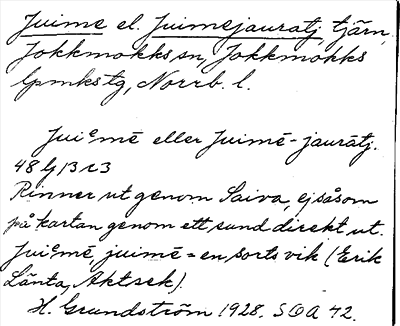 Juime el. Juimejauratj, tjärn,
Jokkmokks sn, Jokkmokks
lpmkstg, Norrb. l.
Juiᵉmē eller Juimē-jaurātj.
48 lj B r 3
Rinner ut genom Saiva, ej såsom
på kartan genom ett sund direkt ut.
Juiᵉmē, juimē = en sorts vik (Erik
Länta, Aktsek).
H. Grundström 1928. SOA 42.